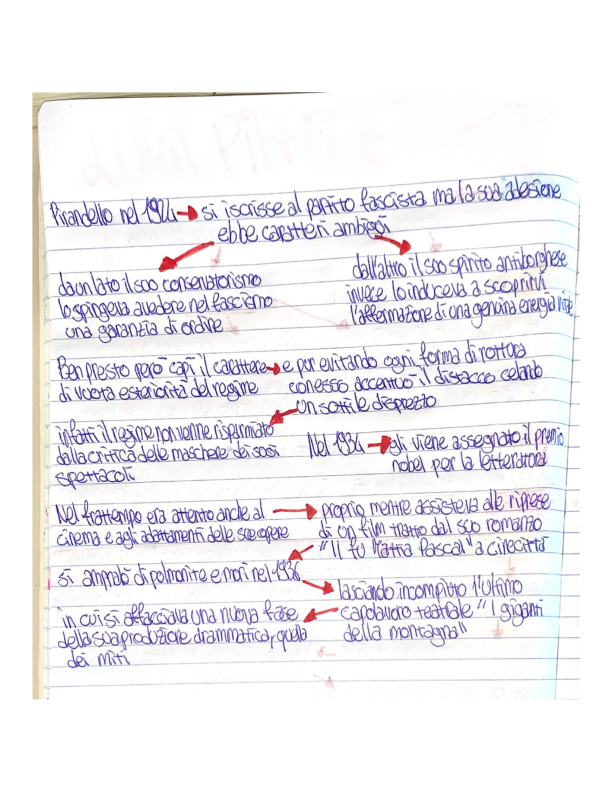 Pirandello nel 1924 → si iscrisse al partito fascista ma la sua adesione
ebbe caratteri ambigui
da un lato il suo conservatorismo
lo spingeva a vedere nel fascismo
una garanzia di ordine
dall'altro il suo spirito antiborghese
invece lo induceva a scoprirvi
l'affermazione di una genuina energia
Ben presto però capì il carattere → e pur evitando ogni forma di rottura
di vuota esteriorità del regime con esso accentuò il distacco celando
un sottile disprezzo
infatti il regime non venne risparmiato
dalla critica delle maschere dei suoi
spettacoli
Nel 1934 → gli viene assegnato il premio
nobel per la letteratura
Nel frattempo era attento anche al → proprio mentre assisteva alle riprese
cinema e agli adattamenti delle sue opere di un film tratto dal suo romanzo
"Il fu Mattia Pascal" a cinecittà
si ammalò di polmonite e morì nel 1936
lasciando incompiuto l'ultimo
capolavoro teatrale "I giganti
della montagna"
in cui si affacciava una nuova fase
della sua produzione drammatica, quella
dei miti